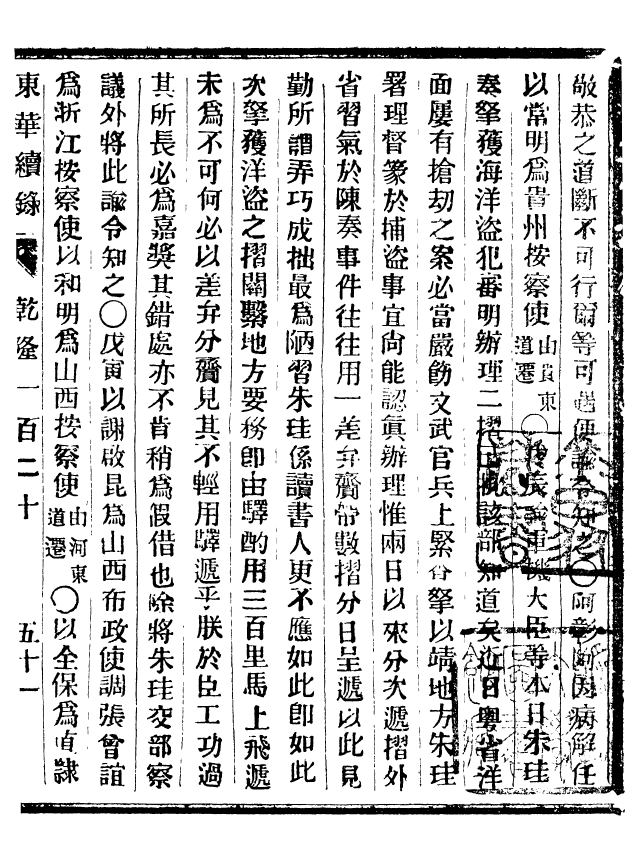 敬恭之道斷不可行爾等可遇便諭令知之○阿彰阿因病解任
以常明爲貴州按察使由貴東道遷○諭軍機大臣等本日朱珪
奏拏獲海洋盜犯審明辦理二摺已批該部知道矣近日粵省洋
面屢有搶刼之案必當嚴飭文武官兵上緊查拏以靖地方朱珪
署理督篆於捕盜事宜尙能認眞辦理惟兩日以來分次遞摺外
省習氣於陳奏事件往往用一差弁齎帶數摺分日呈遞以此見
勤所謂弄巧成拙最爲陋習朱珪係讀書人更不應如此卽如此
次拏獲洋盜之摺關繫地方要務卽由驛酌用三百里馬上飛遞
未爲不可何必以差弁分齎見其不輕用驛遞乎朕於臣工功過
其所長必爲嘉獎其錯處亦不肯稍爲假借也除將朱珪交部察
議外將此諭令知之○戊寅以謝啟昆爲山西布政使調張曾誼
爲浙江按察使以和明爲山西按察使由河東道遷○以全保爲直隸
東華續錄 乾隆一百二十 五十一